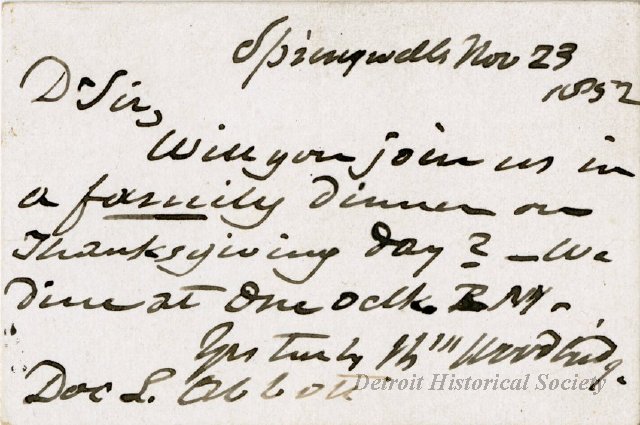 Springwells Nov 23
1852
Dr Sir,
Will you join us in
a family dinner on
Thanksgiving day? — We
dine at One oclk. P.M.
Yrs truly Wm Woodbridge.
Doc L. Abbott
Detroit Historical Society